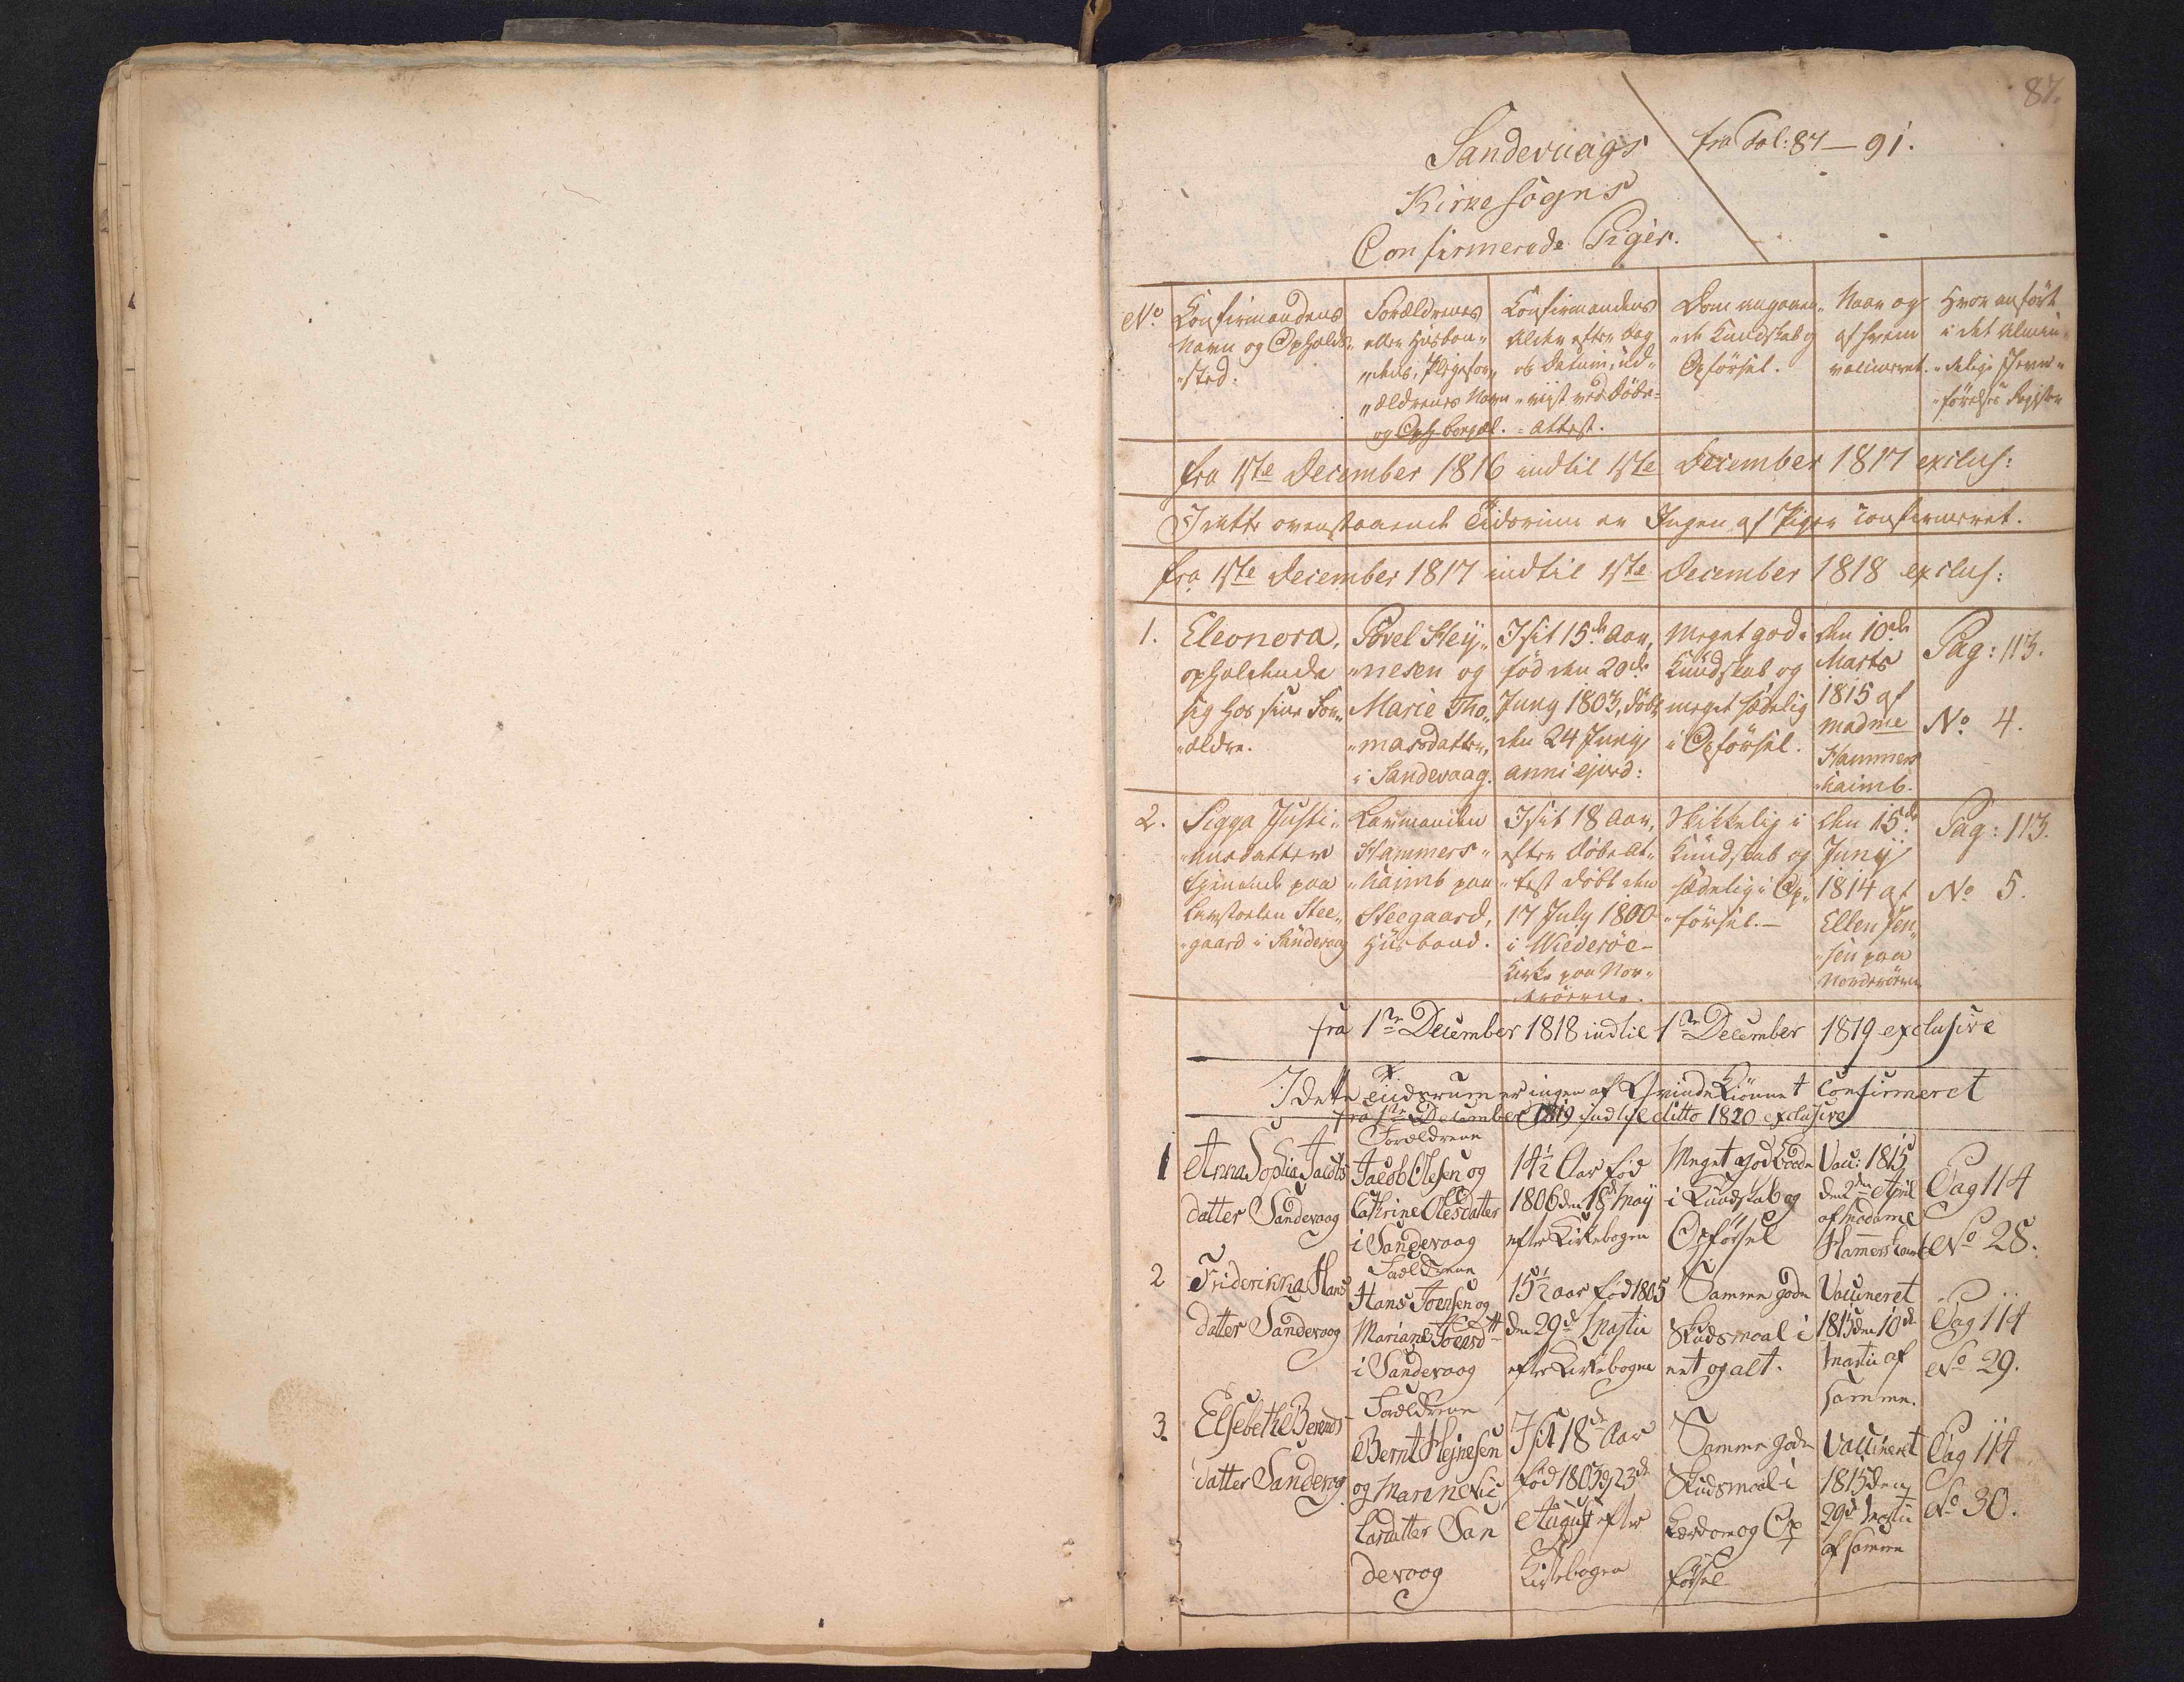 87.
Sandevaags
fra Fol: 87 — 91.
Kirkesogns
Confirmerede Piger.
No.
Confirmandens
Navn og Opholds„
„sted.
Forældrenes
eller Huusbon„
„dens, Plejefor„
„ældrenes Navn
og
Confirmandens
Alder efter Dag
og Datum, ud„
„viist ved Døbe=
=Attest.
Dom angaaen„
„de Kundskab og
Opførsel.
Naar og
af hvem
vaccineret.
Hvor anført
i det Almin„
„delige Jevn„
„førelses Register
fra 1ste December 1816 indtil 1ste December 1817 exclus:
I dette ovenstaaende Tidsrum er Ingen af Piger confirmeret.
fra 1ste December 1817 indtil 1ste December 1818 exclus:
1.
Eleonora,
opholdende
sig hos sine For„
„ældre.
Povel Hey„
„nesen og
Marie Tho„
„masdatter,
i Sandevaag.
I sit 15de Aar,
fød den 20de
Juny 1803, døbt
den 24 Juny
anni ejusd:
Meget god i
Kundskab og
meget sædelig
i Opførsel.
den 10de
Marts
1815 af
Madme
Hammers
„haimb.
Pag: 113.
No 4.
2.
Sigga Justi„
„nusdatter
tjenende paa
Stee„
„gaard i Sandevaag
Lavmanden
Hammers„
„haimb paa
Steegaard,
Huusbond.
I sit 18 Aar,
efter Døbeat„
„test døbt den
17 July 1800
i Wiederøe
Kirke paa Nor„
„derøerne.
Skikkelig i
Kundskab og
sædelig i Op„
„førsel.—
den 15de
Junij
1814 af
Ellen Jen„
„sen paa
Norderøerne
Pag: 113.
No 5.
fra 1te December 1818 indtil 1te December 1819 exclusive
I dette Tidsrum er ingen af Qvinde Kiönnet Confirmeret
fra 1te December 1819 indtil ditto 1820 exclusive
1
Anna Sophia Jacobs
datter Sandevaag
Forældrene
Jacob Olesen og
Cathrine Olesdatter
i Sandevaag
14½ Aar fød
1806 den 18de Maij
efter Kirkebogen
Meget god baade
i Kundskab og
Opførsel
Vacc: 1815
den 2den April
af Madame
Hamershaimb
Pag 114
No 28.
2
Friderikka Hans
datter Sandevaag
Forældrene
Hans Joensen og
Mariane Joensdtt
i Sandevaag
15½ aar fød 1805
den 29de Martii
efter Kirkebogen
Samme gode
Skudsmaal i
eet og alt.
Vaccineret
1815 den 10de
Martii af
samme.
Pag 114
No 29.
3.
Elsebeth Berends
datter Sandevog
Forældrene
Bernt Hejnesen
og Maren Nic
lasdatter San
devaag
I sit 18de Aar
fød 1803 d 23de
August efter
Kirkebogen
Samme gode
Skudsmaal i
Lærdom og Op
førsel
Vaccineret
1815 den
29de Martii
af samme
Pag 114
No 30.